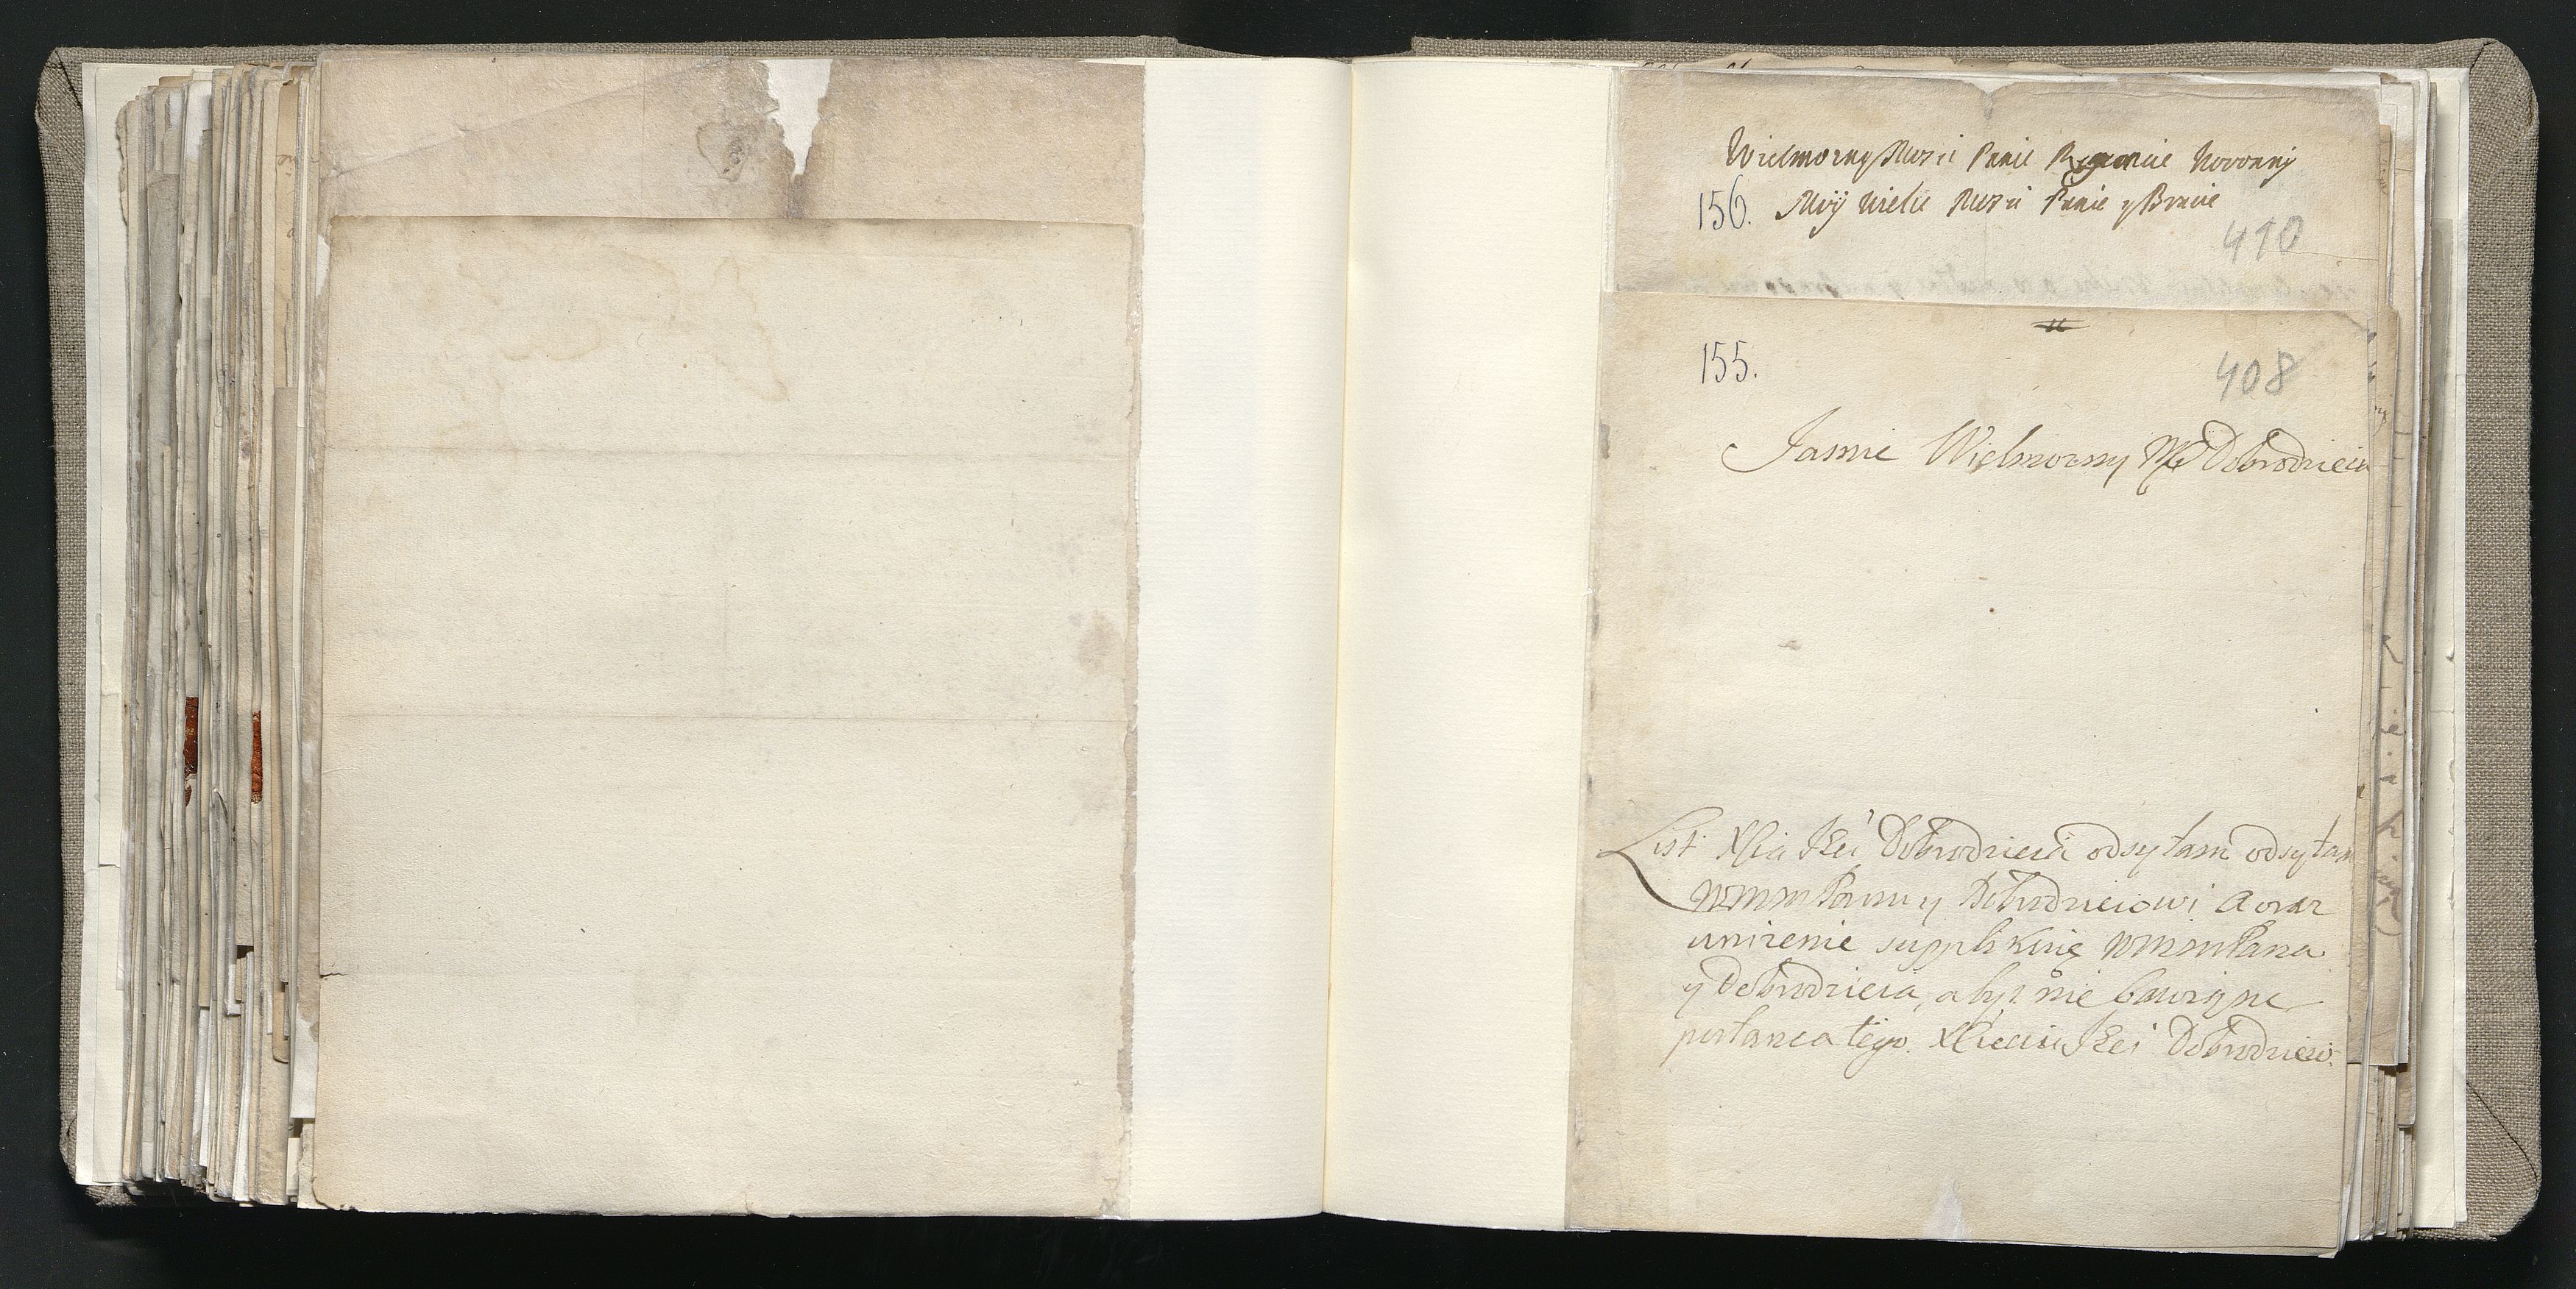 Wielmozny Mosci Panie Regencie Koronny
156. Mój wielce Mosci Panie y Bracie
410
155.
408
Jasnie Wielmozny Mci Dobrodzieiu
List Xcia Jmci Dobrodzieia odsyłam odsyłam
WMMPanu y Dobrodzieiowi a oraz
unizenie supplikuię WMMPana
y Dobrodzieia, abyś nie bawiąc
posłanca tego Xciciu Jmci Dobrodzieio: